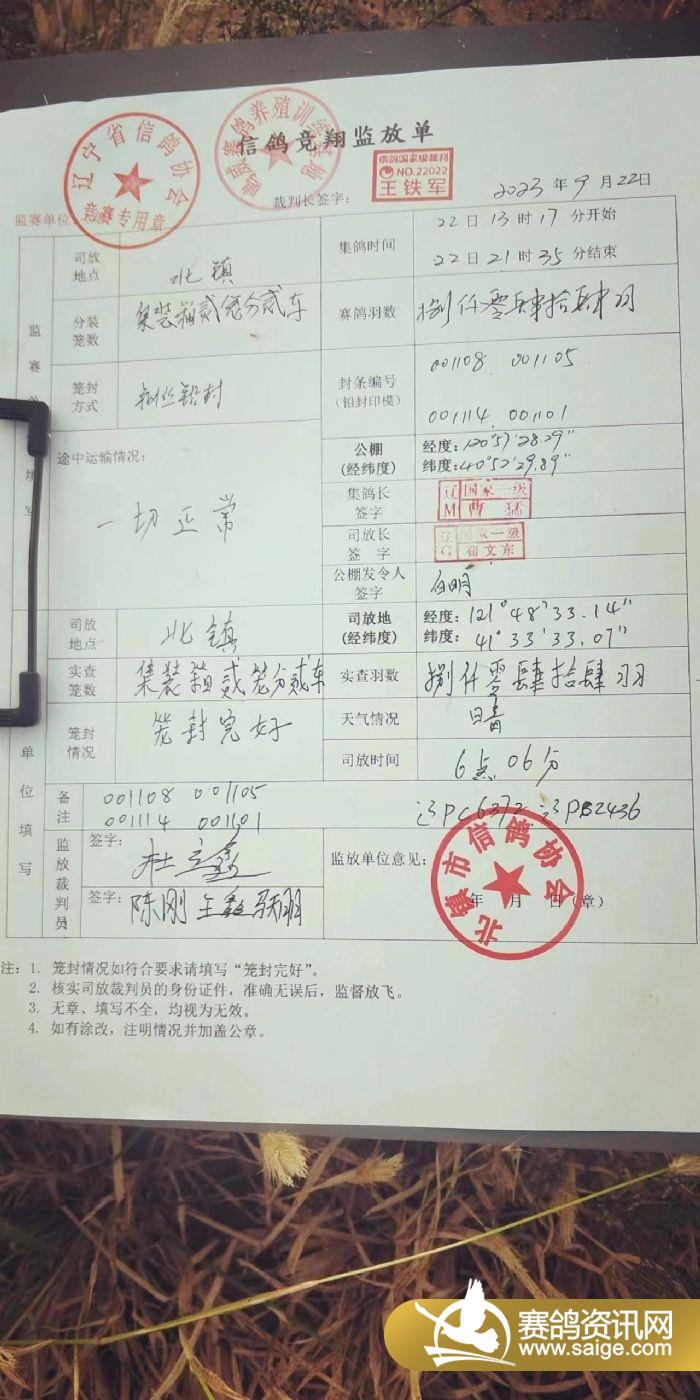 信鸽竞翔监放单
辽宁省信鸽协会
竞赛专用章
信鸽国家级裁判
NO.22022
王铁军
监赛单位:
裁判长签字:
2023年9月22日
监赛单位填写
司放地点
北镇
集鸽时间
22日13时17分开始
22日21时35分结束
分装笼数
集装箱贰笼分贰车
赛鸽羽数
捌仟零肆拾肆羽
笼封方式
铜丝铅封
封条编号
(铅封印模)
001108 001105
001114 001101
途中运输情况:
一切正常
公棚
(经纬度)
经度:120°57'28.29"
纬度:40°52'29.89"
集鸽长签字
辽 国家一级
M 曹猛
司放长签字
辽 国家一级
G 荀文东
公棚发令人签字
白明
司放地点
北镇
司放地
(经纬度)
经度:121°48'33.14"
纬度:41°33'33.07"
实查笼数
集装箱贰笼分贰车
实查羽数
捌仟零肆拾肆羽
笼封情况
笼封完好
天气情况
晴
司放时间
6点06分
单位填写
备注
001108 001105
001114 001101
辽PC6372 辽PB2436
监放裁判员
签字:
杜立鑫
签字:
陈刚 王鑫
监放单位意见:
北镇市信鸽协会
年 月 日(章)
注:1. 笼封情况如符合要求请填写“笼封完好”。
2. 核实司放裁判员的身份证件,准确无误后,监督放飞。
3. 无章、填写不全,均视为无效。
4. 如有涂改,注明情况并加盖公章。
赛鸽资讯网
www.saige.com